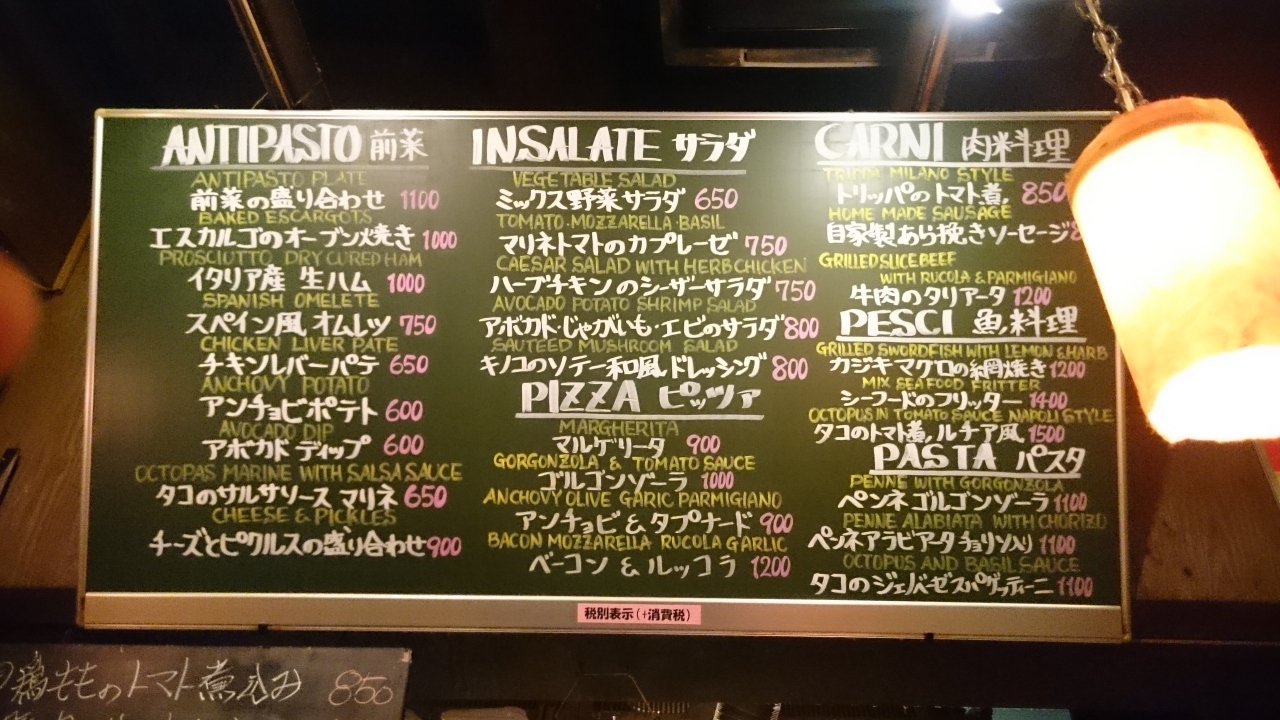 ANTIPASTO 前菜
ANTIPASTO PLATE
前菜の盛り合わせ 1100
BAKED ESCARGOTS
エスカルゴのオーブン焼き 1000
PROSCIUTTO DRY CURED HAM
イタリア産 生ハム 1000
SPANISH OMELETE
スペイン風オムレツ 750
CHICKEN LIVER PATE
チキンレバーパテ 650
ANCHOVY POTATO
アンチョビポテト 600
AVOCADO DIP
アボカドディップ 600
OCTOPAS MARINE WITH SALSA SAUCE
タコのサルサソースマリネ 650
CHEESE & PICKLES
チーズとピクルスの盛り合わせ 900
INSALATE サラダ
VEGETABLE SALAD
ミックス野菜サラダ 650
TOMATO・MOZZARELLA・BASIL
マリネトマトのカプレーゼ 750
CAESAR SALAD WITH HERB CHICKEN
ハーブチキンのシーザーサラダ 750
AVOCADO POTATO SHRIMP SALAD
アボカド・じゃがいも・エビのサラダ 800
SAUTEED MUSHROOM SALAD
キノコのソテー和風ドレッシング 800
PIZZA ピッツァ
MARGHERITA
マルゲリータ 900
GORGONZOLA & TOMATO SAUCE
ゴルゴンゾーラ 1000
ANCHOVY OLIVE GARIC PARMIGIANO
アンチョビ&タプナード 900
BACON MOZZARELLA RUCOLA GARLIC
ベーコン&ルッコラ 1200
CARNI 肉料理
TRIPPA MILANO STYLE
トリッパのトマト煮 850
HOME MADE SAUSAGE
自家製あら挽きソーセージ
GRILLED SLICE BEEF
WITH RUCOLA & PARMIGIANO
牛肉のタリアータ 1200
PESCI 魚料理
GRILLED SWORDFISH WITH LEMON & HARB
カジキマグロの網焼き 1200
MIX SEAFOOD FRITTER
シーフードのフリッター 1400
OCTOPUS IN TOMATO SAUCE NAPOLI STYLE
タコのトマト煮,ルチア風 1500
PASTA パスタ
PENNE WITH GORGONZOLA
ペンネゴルゴンゾーラ 1100
PENNE ALABIATA WITH CHORIZO
ペンネアラビアータチョリソ入り 1100
OCTOPUS AND BASIL SAUCE
タコのジェノベーゼスパゲッティーニ 1100
税別表示(+消費税)
鶏もものトマト煮込み 850